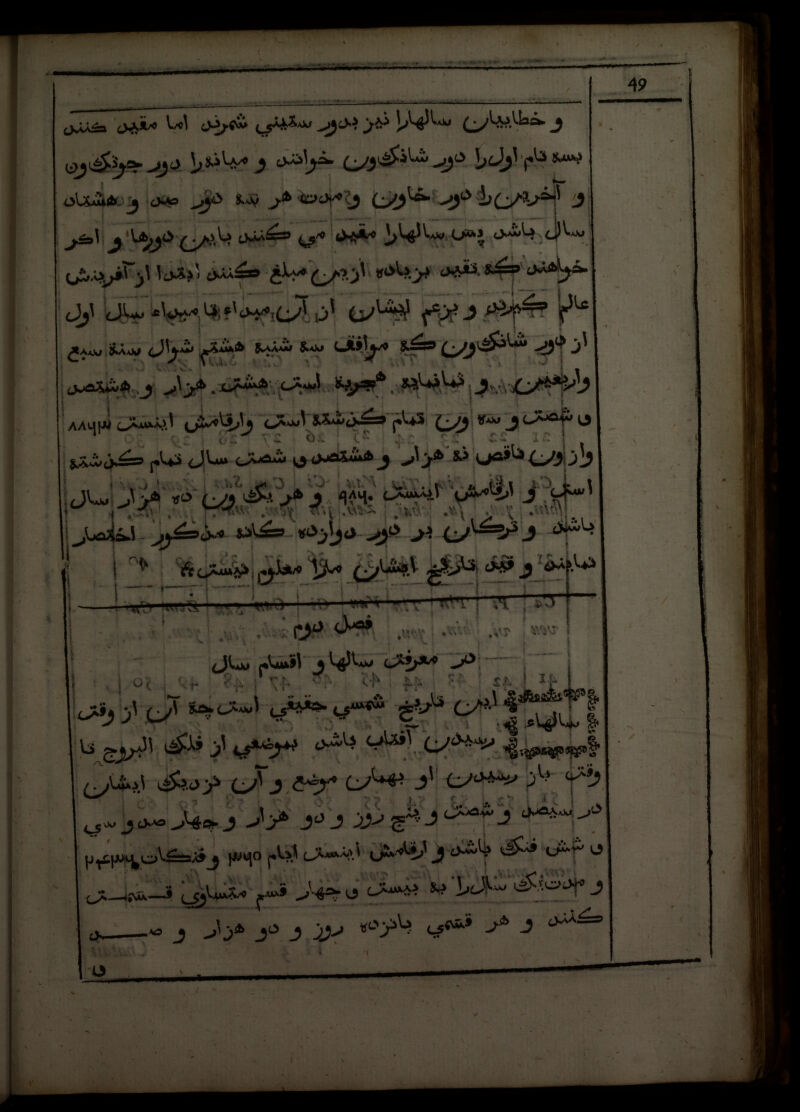 49
و خطاییان سالهارا نیز بدور ستینی شمرند اما مقید کنند
بسه نام اول را دور شانکون خوانند و میانه را دور جونکون
و آخرین را دور خاون و مدت هر سه دور صد و هشتاد
سال باشد پس سالهارا مقید می کنند باین دورها و اکر
خواهند که تقید بزیاده ازین مبلغ کنند ابتدا از آفرینش
عالم کیرند و بزعم ایشان از آن مبداء تا مبداء سال اول
از دور شانکون که موافق سه شنبه هشتم شوال سنه سبع
واربعین و ثمانمایه هجریه است هشت هزار و هشتصد
و شصت و سه ون تمام کذشته است وارقامش اینست ٨٨٦٣
وازون ناقص نه هزار و هشتصد و شصت سال تمام کذشته
است و ارقامش اینست ٩٨٦٠ و هر یک ون ده هزار سال
باشد و ترکان بر دور دوازده کانه مذکور اختصار
نمایند و قید تاریخ ایشان مارا معلوم نیست
فصل دوم
در معرفت سالها و اقسام سال
سالهاء این تاریخ شمسی حقیقی است چه آن از وقت
رسیدن آفتاب باشد بموضعی از فلک البروج تا
وقت باز رسیدن او بهمان موضع و آن نزدیک ایشان
در سیصد و شصت و پنج روز و دو هزار و چهار صد و سی
و شش فنک باشد و ارقامش اینست ایام ٣٦٥ و فنکات ٢٤٣٦
و مدت یک سال را به بیست و چهار قسم متساوی قسمت
کنند و هر قسمی پانزده روز و دو هزار و صد
و